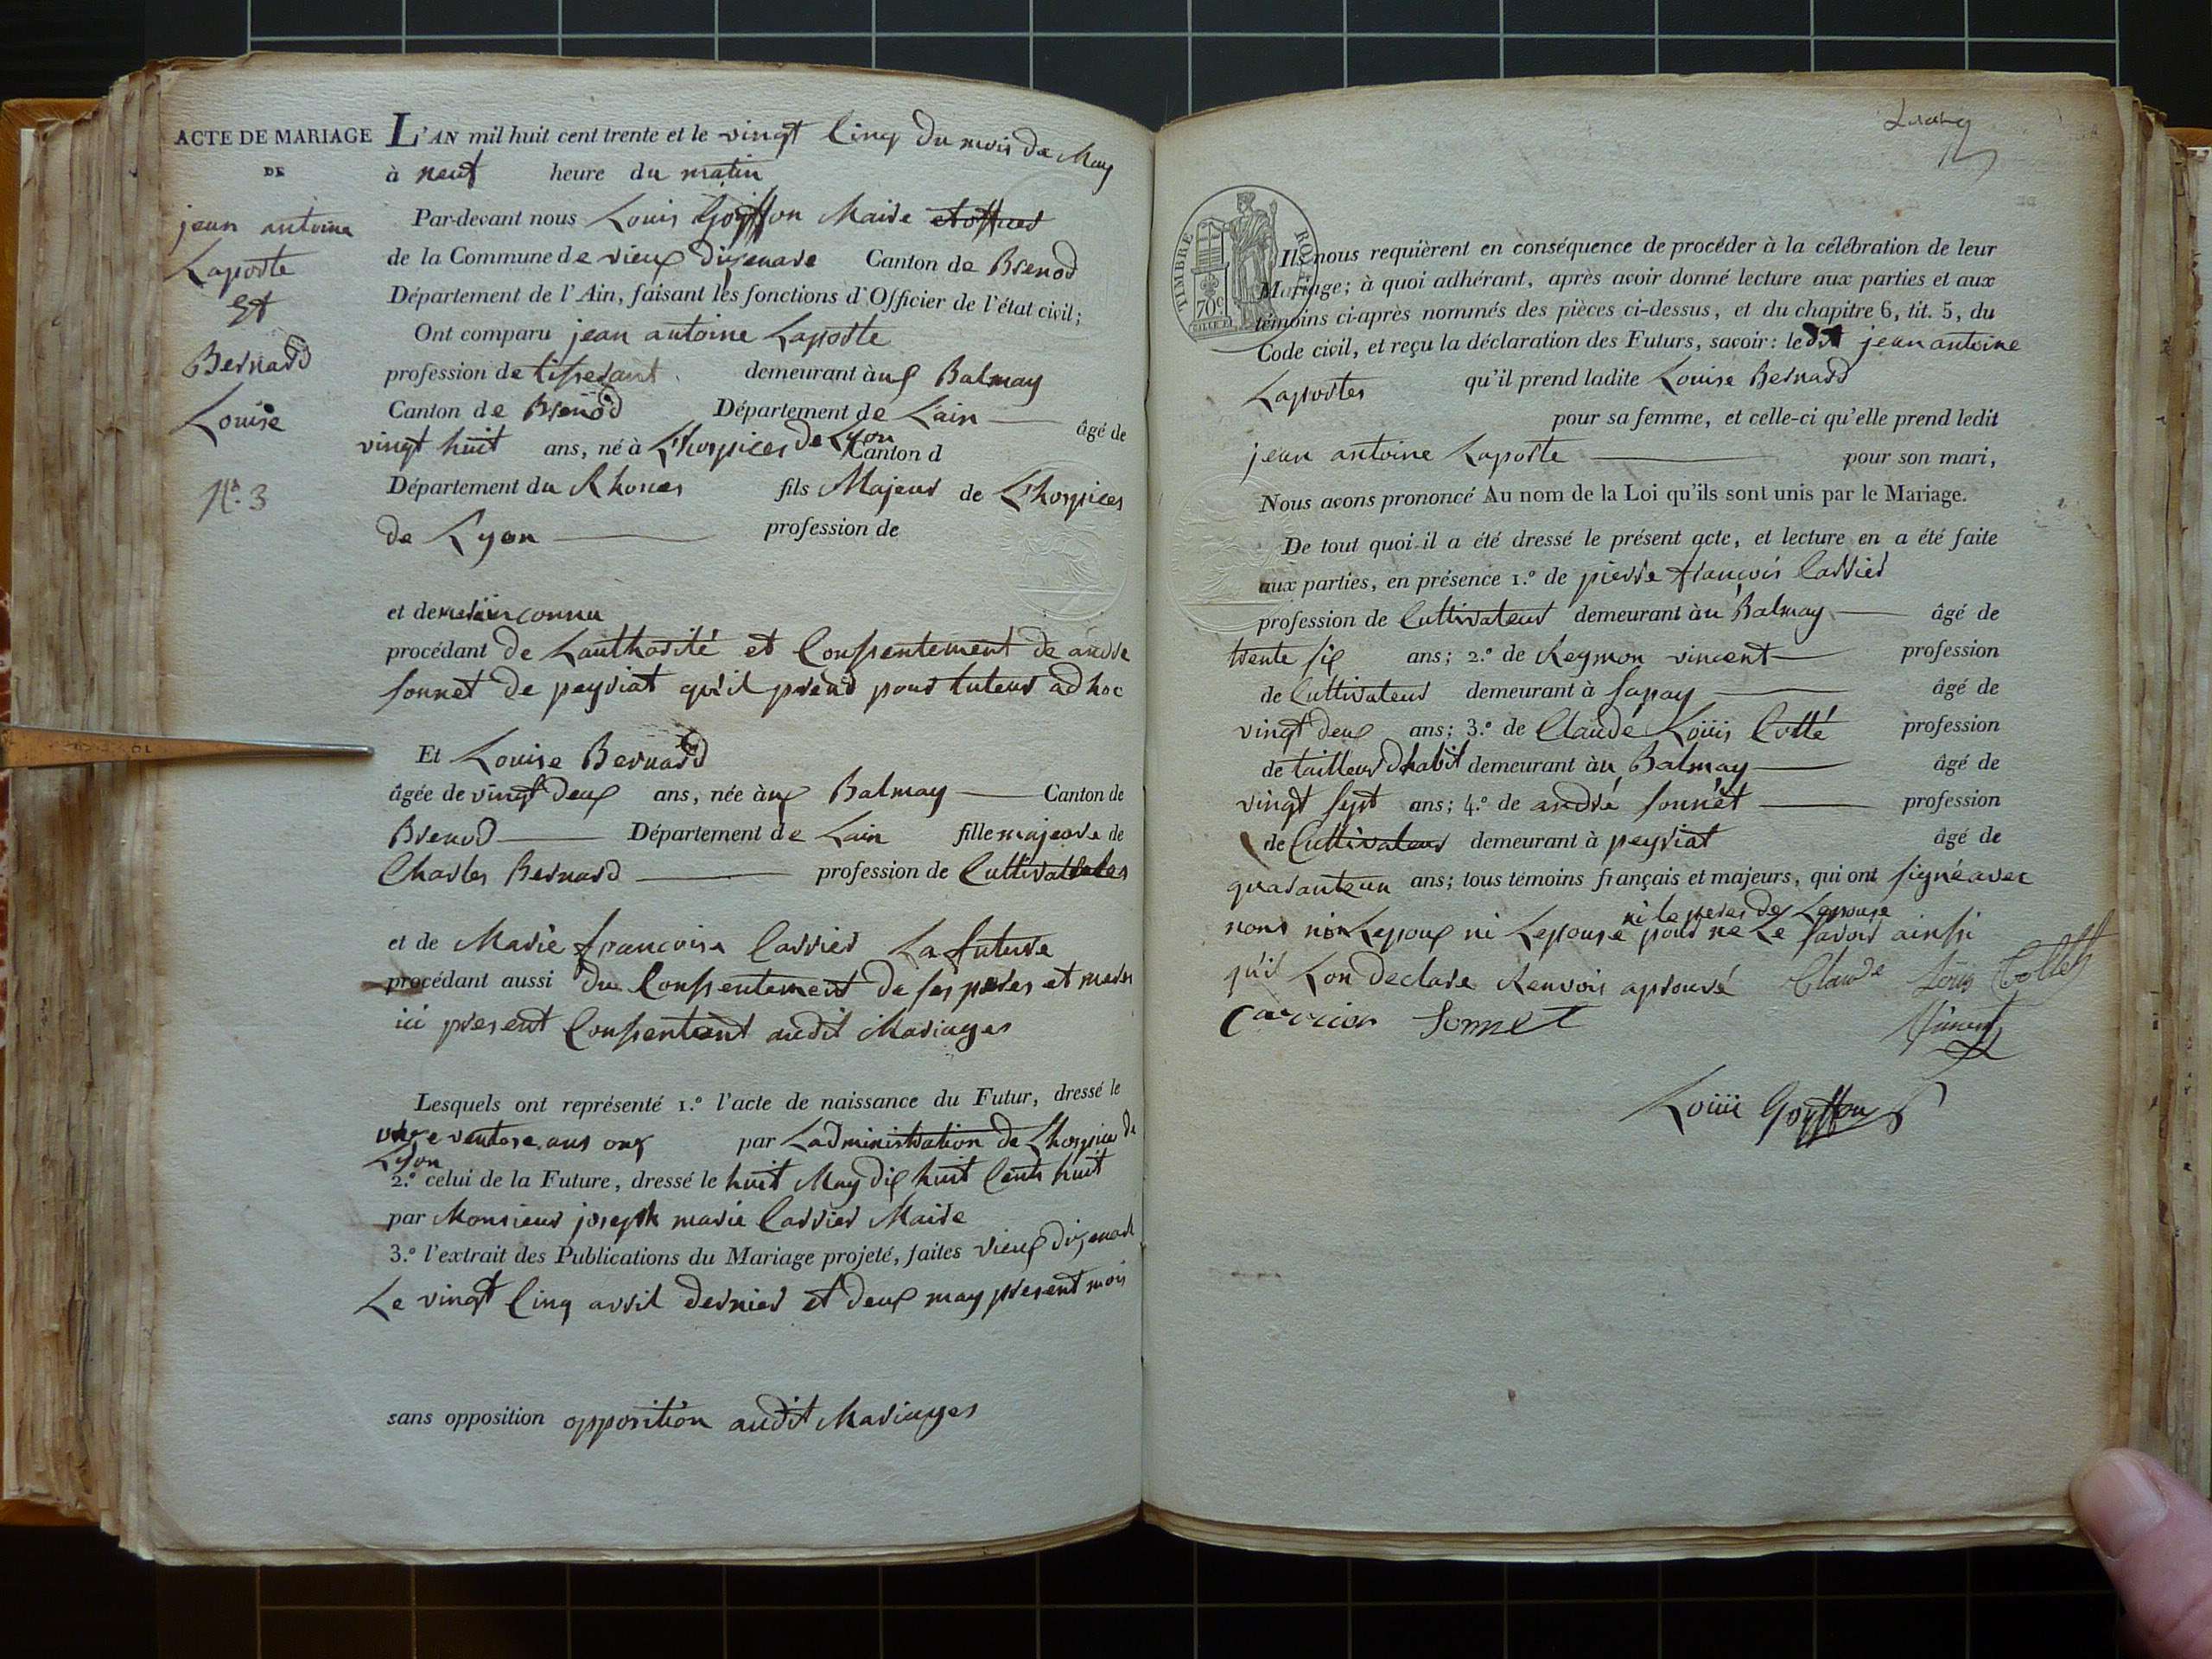 ACTE DE MARIAGE
DE
jean antoine
Laporte
Et
Bernard
Louise
N.o 3
L'AN mil huit cent trente et le vingt Cinq du mois de May
à neuf heure du matin
Par-devant nous Louis Goyffon Maire
de la Commune de vieux dizenave Canton de Brenod
Département de l'Ain, faisant les fonctions d'Officier de l'état civil;
Ont comparu jean antoine Laporte
profession de tisserant demeurant à Balmay
Canton de Brenod Département de Lain âgé de
vingt huit ans, né à Lhospices de Lyon Canton d
Département du Rhones fils Majeur de Lhospices
de Lyon profession de
et de mere inconnu
procédant de Lauthorité et Consentement de andre
sonnet de peyriat qu'il prend pour tuteur ad hoc
Et Louise Bernard
âgée de vingt deux ans, née à Balmay Canton de
Brenod Département de Lain fille majeure de
Charles Bernard profession de
et de Marie francoise Carrier La future
procédant aussi du Consentement de ses peres et meres
ici present Consentant audit Mariages
Lesquels ont représenté 1.o l'acte de naissance du Futur, dressé le
onze ventose ans onze par Ladministration de Lhospice de
Lyon
2.o celui de la Future, dressé le huit May dix huit Cents huit
par Monsieur joseph marie Carrier Maire
3.o l'extrait des Publications du Mariage projeté, faites vieux
Le vingt Cinq avril dernier et deux may present mois
sans opposition opposition audit Mariages
TIMBRE ROYAL
70c
Ils nous requièrent en conséquence de procéder à la célébration de leur
Mariage; à quoi adhérant, après avoir donné lecture aux parties et aux
témoins ci-après nommés des pièces ci-dessus, et du chapitre 6, tit. 5, du
Code civil, et reçu la déclaration des Futurs, savoir: le dit jean antoine
Laportes qu'il prend ladite Louise Bernard
pour sa femme, et celle-ci qu'elle prend ledit
jean antoine Laporte pour son mari,
Nous avons prononcé Au nom de la Loi qu'ils sont unis par le Mariage.
De tout quoi il a été dressé le présent acte, et lecture en a été faite
aux parties, en présence 1.o de pierre françois Carrier
profession de Cultivateur demeurant àu Balmay âgé de
trente six ans; 2.o de Reymon vincent profession
de Cultivateur demeurant à Sapay âgé de
vingt deux ans; 3.o de Claude Loüis Collé profession
de tailleur dhabit demeurant àu Balmay âgé de
vingt sept ans; 4.o de andré sonnet profession
de Cultivateur demeurant à peyriat âgé de
quaranteun ans; tous témoins français et majeurs, qui ont signé avec
ni le peres de Lepouse
nous ni Lepoux ni Lepouse pour ne Le savoir ainsi
qu'il Lon declare Renvois aprouvé Claude Louis Collet
Carrier Sonnet
Vincent
Loüi Goyffon